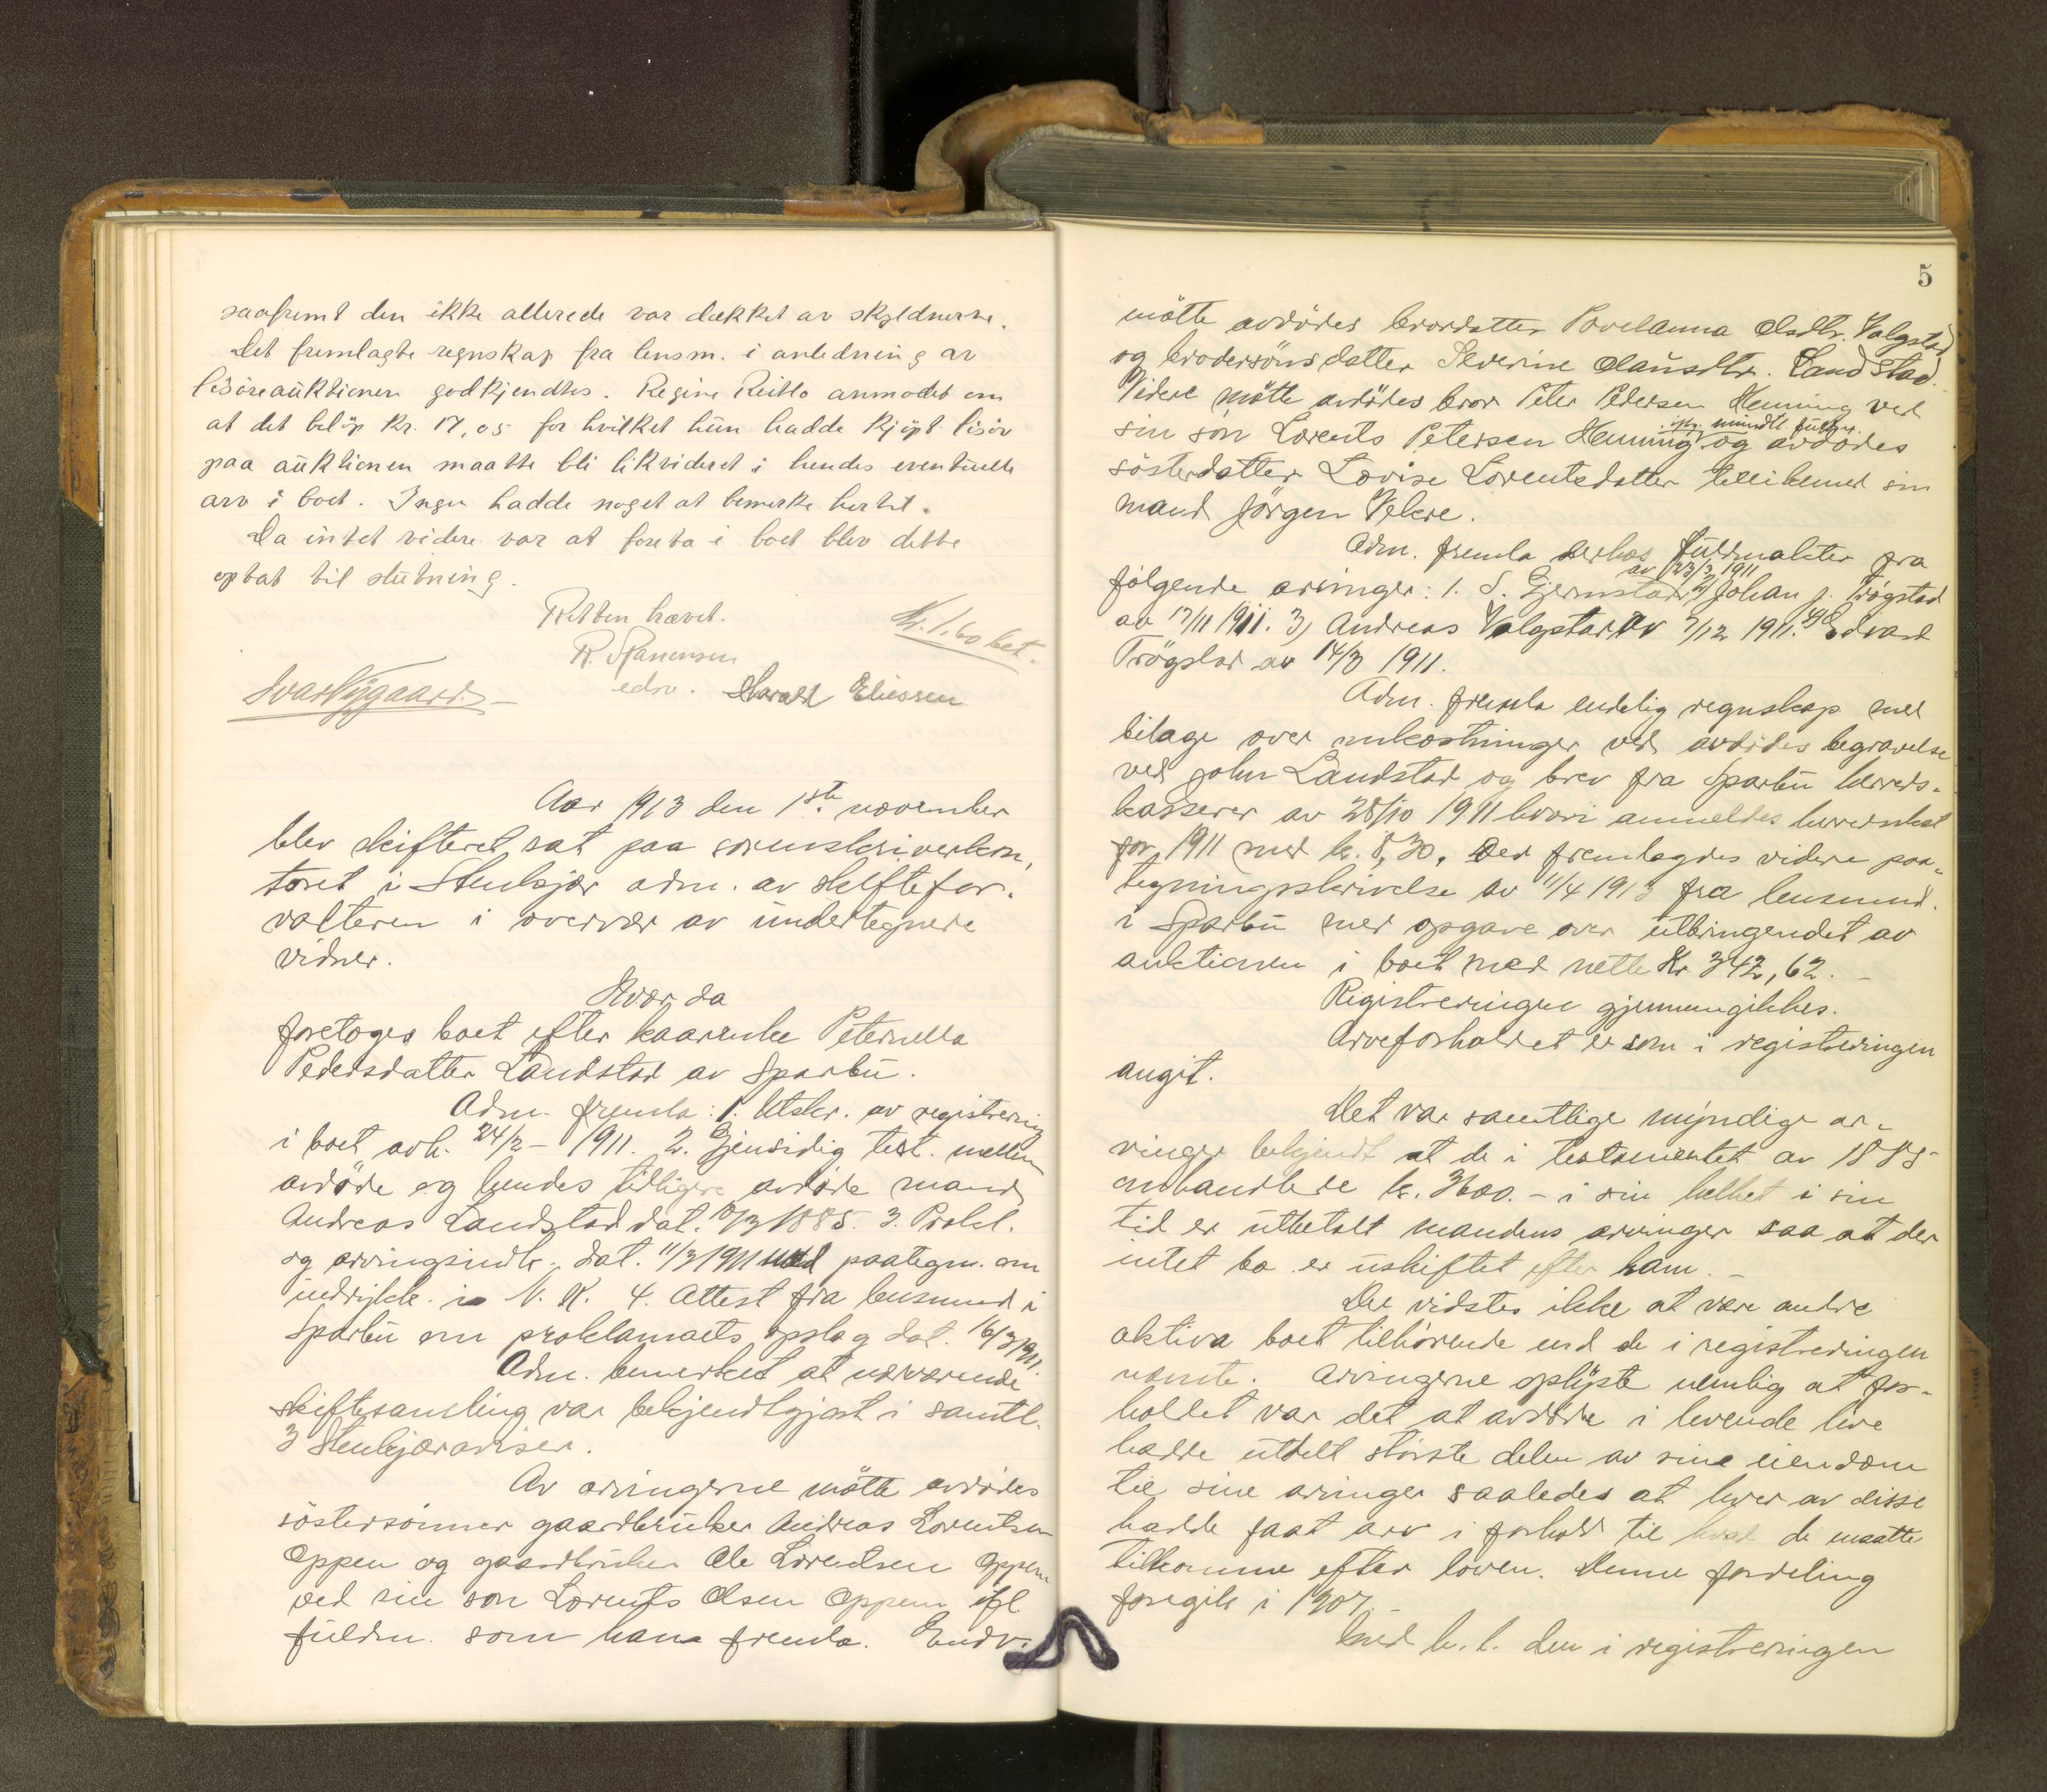 saafremt den ikke allerede var dækket av skyldnerne.
Det fremlagte regnskap fra lensm. i anledning av
lösöreauktionen godkjendtes. Regine Reitlo anmodet om
at det belöp kr. 17,05 for hvilket hun hadde kjöpt lösöre
paa auktionen maatte bli likvideret i hendes eventuelle
arv i boet. Ingen hadde noget at bemerke hertil.
Da intet videre var at foreta i boet blev dette
optat til slutning.
Retten hævet.
Kr. 1.60 bet.
edsv. Harald Eliessen
Ivar Nygaard.
Aar 1913 den 1ste november
blev skifteret sat paa sorenskriverkon,
toret i Stenkjær adm. av skiftefor-
valteren i overvær av undertegnede
vidner.
Hvor da
foretoges boet efter kaarenke Peternella
Pedersdatter Landstad av Sparbu.
Adm. fremla: 1. Utskr. av registrering
i boet avh. 24/2 - 1911. 2. Gjensidig test. mellem
avdöde og hendes tidligere avdöde mand
Andreas Landstad dat. /3 1885. 3. Prokl.
og arvingsindk. dat. 11/3 1911 med paategn. om
indrykk. i N. K. 4. Attest fra lensmand i
Sparbu om proklamaets opslag dat. 16/3 1911.
Adm. bemerket at nærværende
skiftesamling var bekjendtgjort i samtl.
3 Stenkjæraviser.
Av arvingerne mötte avdödes
söstersönner gaardbruker Andreas Lorentsen
Oppem og gaardbruker Ole Lorentsen Oppem
ved sin sön Lorents Olsen Oppem ifl.
fuldm. som han fremla. Endv.
5
mötte avdödes brordatter Povelanna Olsdtr. Valgstad
og brodersöns datter Severine Olausdtr. Landstad.
Videre mötte avdödes bror Peter Pedersen Henning ved
sin sön Lorents Petersen Henning iflg. mundtl. fuldm. og avdödes
sösterdatter Lovise Lorentsdatter tillikemed sin
mand Jörgen Vekre.
Adm. fremla derhos fuldmakter fra
fölgende arvinger: 1. S. Gjermstad av 23/3 1911 2) Johan J. Trögstad
av 17/11 1911. 3) Andreas Valgstad av 7/12 1911. 4) Edvard
Trögstad av 14/3 1911.
Adm. fremla endelig regnskap med
bilage over omkostninger ved avdödes begravelse
ved John Landstad og brev fra Sparbu herreds-
kasserer av 28/10 1911 hvori anmeldes herredsskat
for 1911 med kr. 8,30. Der fremlagdes videre paa-
tegningsskrivelse av 11/4 1913 fra lensmand.
i Sparbu med opgave over utbringendet av
auktionen i boet med netto Kr 342,62. -
Registreringen gjennemgikkes.
Arveforholdet er som i registreringen
angit.
Det var samtlige myndige ar-
vinger bekjendt at de i testamentet av 1885
omhandlede kr. 3600.- i sin helhet i sin
tid er utbetalt mandens arvinger saa at der
intet bo er uskiftet efter ham. -
Der vidstes ikke at være andre
aktiva boet tilhörende end de i registreringen
nævnte. Arvingerne oplyste nemlig at for-
holdet var det at avdöde i levende live
hadde utdelt störste delen av sine eiendom
til sine arvinger saaledes at hver av disse
hadde faat arv i forhold til hvad de maatte
tilkomme efter loven. Denne fordeling
foregik i 1907. -
Med h. t. den i registreringen